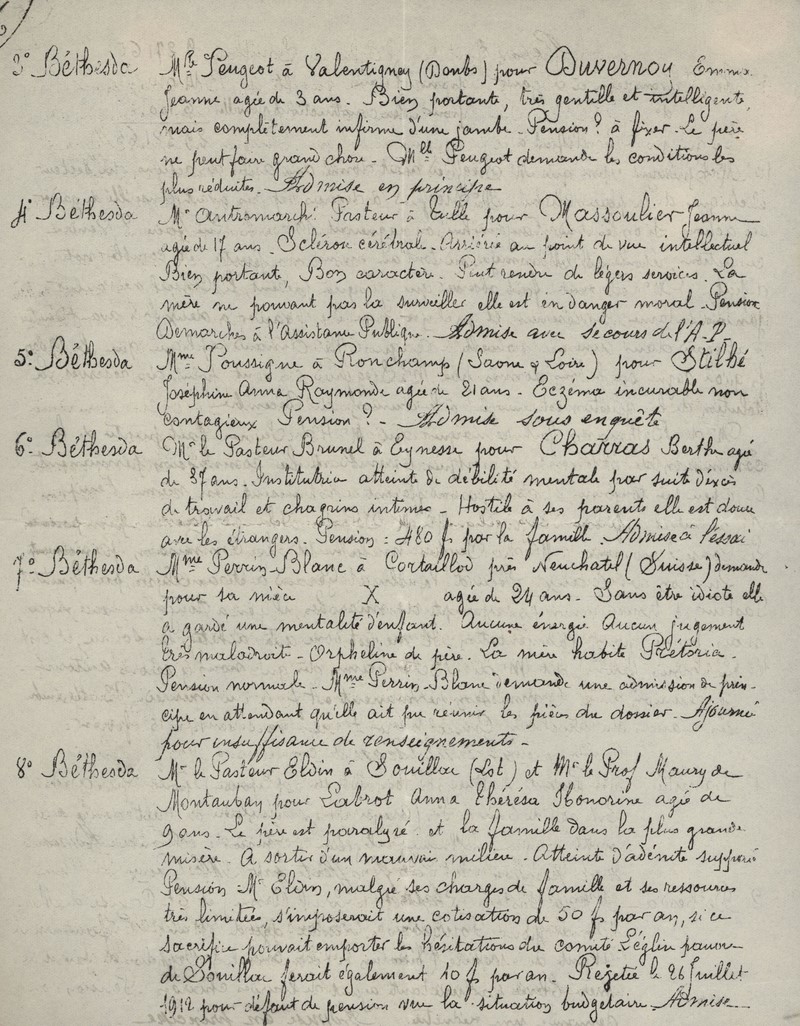 3° Béthesda Mlle Peugeot à Valentigney (Doubs) pour Duvernoy Emma
Jeanne agée de 3 ans. Bien portante, très gentille et intelligente,
mais complètement infirme d'une jambe. Pension ? à fixer. Le père
ne peut faire grand chose. Mlle Peugeot demande les conditions les
plus réduites. Admise en principe
4° Béthesda Mr Antromarchi Pasteur à Tulle pour Massoulier Jeanne
agée de 17 ans. Sclérose cérébrale. Arriérée au point de vue intellectuel
Bien portante, Bon caractère. Peut rendre de légers services. La
mère ne pouvant pas la surveiller elle est en danger moral. Pension
Démarches à l'Assistance Publique. Admise avec secours de l'A.P.
5° Béthesda Mme Poussigne à Ronchamp (Saone & Loire) pour Stilhé
Joséphine Anna Raymonde agée de 21 ans. Eczéma incurable non
contagieux Pension ? - Admise sous enquête
6° Béthesda Mr le Pasteur Brunel à Eynesse pour Charras Berthe agée
de 37 ans. Institutrice atteinte de débilité mentale par suite d'excès
de travail et chagrins intimes - Hostile à ses parents elle est douce
avec les étrangers. Pension : 480 f par la famille Admise à l'essai
7° Béthesda Mme Perrin-Blanc à Cortaillod près Neuchatel (Suisse) demande
pour sa nièce X agée de 24 ans. Sans être idiote elle
a gardé une mentalité d'enfant. Aucune énergie Aucun jugement
très maladroite - Orpheline de père. La mère habite Prétoria.
Pension normale. Mme Perrin-Blanc demande une admission de prin-
cipe en attendant qu'elle ait pu réunir les pièces du dossier. Ajournée
pour insuffisance de renseignements -
8° Béthesda Mr le Pasteur Eldin à Souillac (Lot) et Mr le Prof Maury de
Montauban pour Labrot Anna Thérésa Honorine agée de
9 ans. Le père est paralysé et la famille dans la plus grande
misère. A sortir d'un mauvais milieu. Atteinte d'adénite suppurée
Pension Mr Eldin, malgré ses charges de famille et ses ressources
très limitées, s'imposerait une cotisation de 50 f par an, si ce
sacrifice pouvait emporter les hésitations du comité L'église pauvre
de Souillac ferait également 10 f par an. Rejetée le 26 Juillet
1912 pour défaut de pension vu la situation budgétaire. Admise -